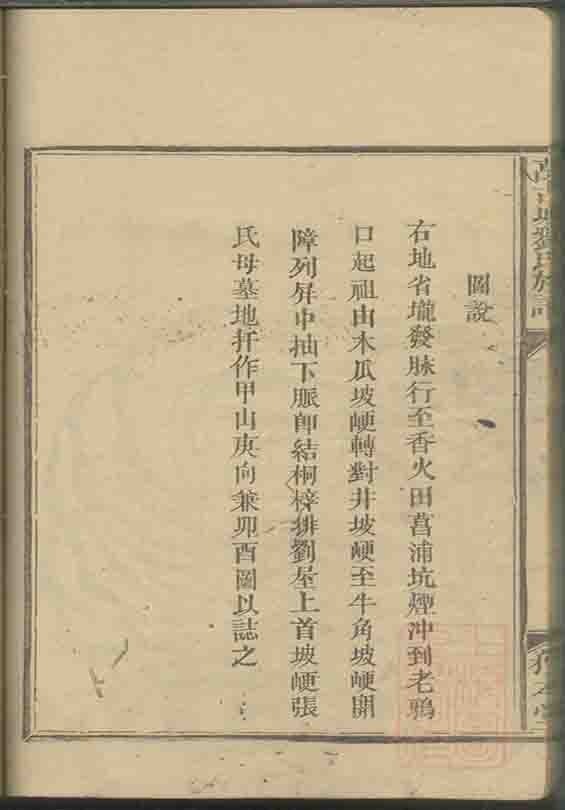 劉氏族譜
圖說
右地省壠發脉行至香火田菖浦坑煙冲到老鴉
口起祖由木瓜坡峺轉對井坡峺至牛角坡峺開
障列屏中抽下脈卽結桐梓排劉屋上首坡峺張
氏母墓地扦作甲山庚向兼卯酉圖以誌之